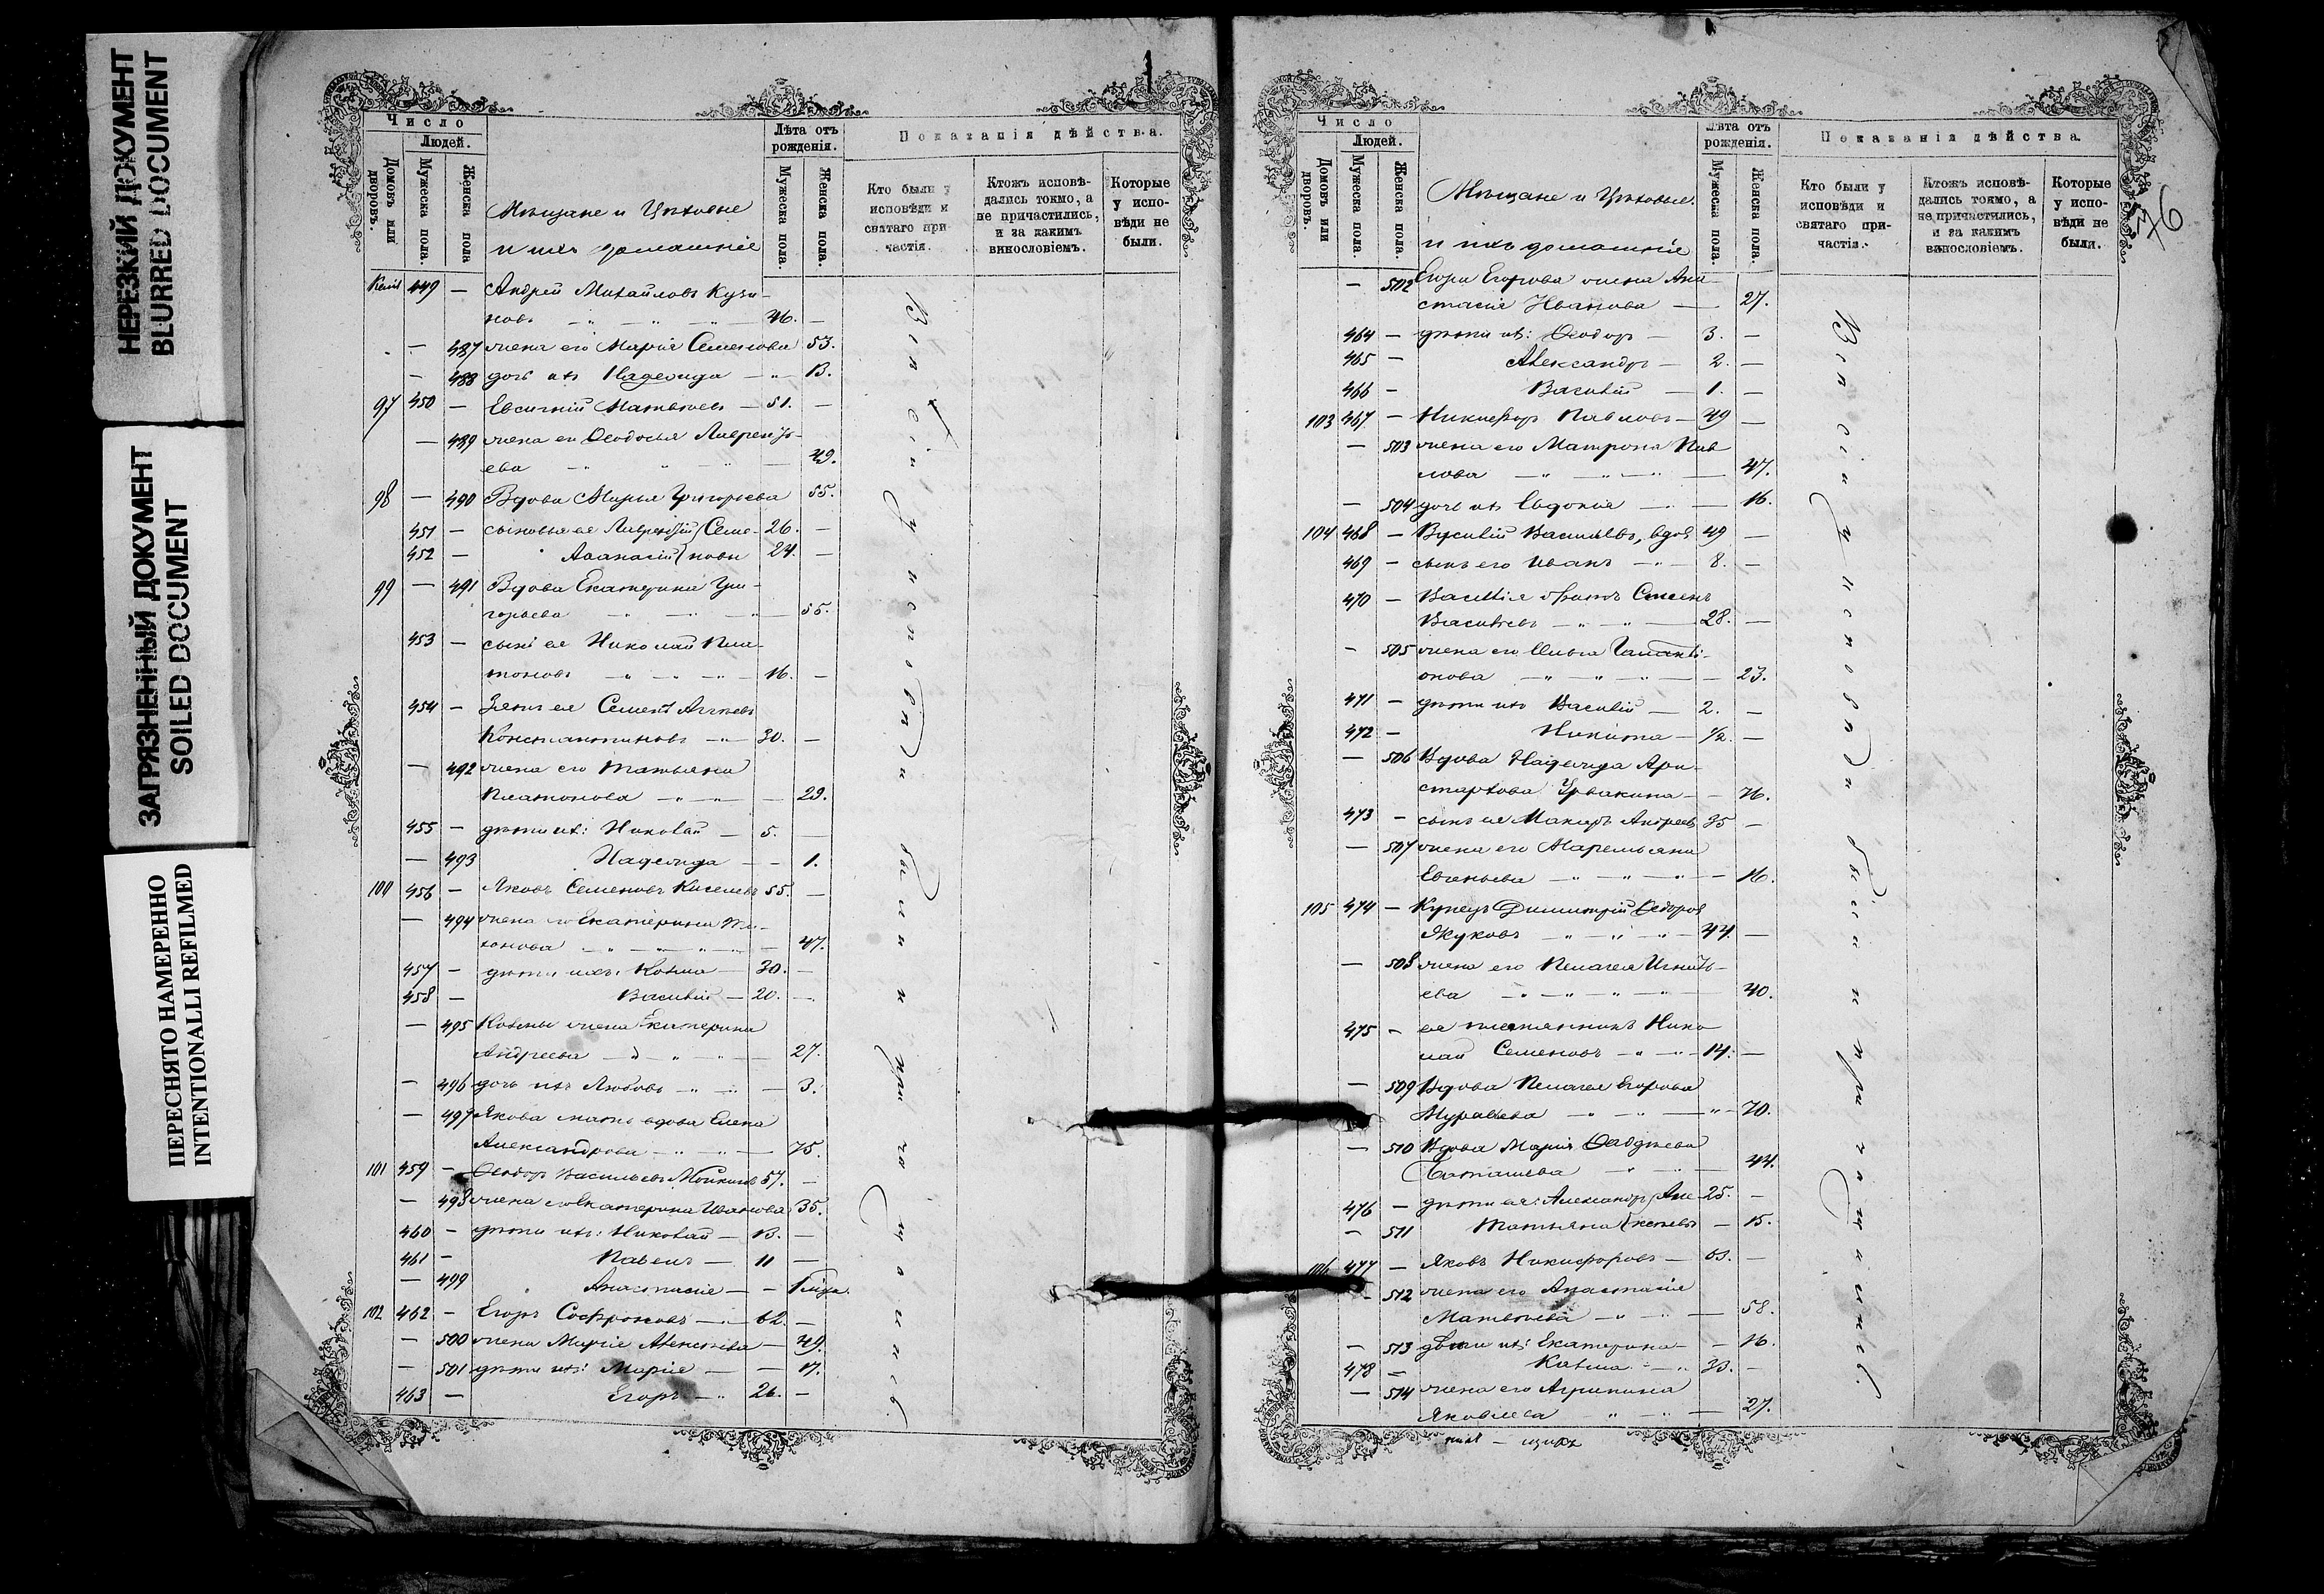 НЕРЕЗКИЙ ДОКУМЕНТ
BLURRED DOCUMENT
ЗАГРЯЗНЕННЫЙ ДОКУМЕНТ
SOILED DOCUMENT
ПЕРЕСНЯТО НАМЕРЕННО
INTENTIONALLI REFILMED
Число
Людей.
Домовъ или дворовъ.
Мужеска пола.
Женска пола
Мѣщане и Цѣховые
и ихъ домашніе
Лѣта отъ рожденія.
Мужеска пола.
Женска пола.
Показанія дѣйства.
Кто были у исповѣди и святаго причастія.
Ктожъ исповѣдались токмо, а не причастились, и за какимъ винословіемъ.
Которые у исповѣди не были.
449 — Андрей Михайловъ Кузи-
новъ — 46. —
— 487 жена его Марія Семенова 53.
— 488 дочь ихъ Надежда — 13.
97 450 — Евсигній Матвѣевъ — 51. —
— 489 жена ег Ѳеодосья Лаврентъ-
ева — 49.
98 — 490 Вдова Марья Григорьева 55.
451 — сыновья ея Лаврентій Семе- 26. —
452 — Аѳанасій новы 24. —
99 — 491 Вдова Екатерина Гри-
горьева — 55.
453 — сынъ ея Николай Пла-
тоновъ — 16. —
454 — Зять ея Семенъ
Константиновъ — 30. —
— 492 жена его Татьяна
Платонова — 29.
455 — дѣти ихъ: Николай — 5. —
— 493 Надежда — 1.
100 456 — Яковъ Семеновъ Киселевъ 55. —
— 494 жена его Екатерина Ти-
хонова — 47.
457 — дѣти ихъ: Козма — 30. —
458 — Василій — 20. —
— 495 Козмы жена Екатерина
Андреева — 27.
— 496 дочь ихъ Любовь — 3.
— 497 Якова мать вдова Елена
Александрова — 75.
101 459 — Ѳеодоръ Васильевъ 57. —
— 498 жена его Екатерина Иванова 35.
460 — дѣти ихъ: Николай — 13. —
461 — Павелъ — 11 —
— 499 Анастасія —
102 462 — Егоръ Софроновъ — 62. —
— 500 жена Марія Алексѣева — 49.
— 501 дѣти ихъ: Марія — 17.
463 — Егоръ — 26. —
Всѣ сіи у исповѣди были и причащались.
Число
Людей.
Домовъ или дворовъ.
Мужеска пола.
Женска пола.
Мѣщане и Цѣховые.
и ихъ домашніе
Лѣта отъ рожденія.
Мужеска пола.
Женска пола.
Показанія дѣйства.
Кто были у исповѣди и святаго причастія.
Ктожъ исповѣдались токмо, а не причастились, и за какимъ винословіемъ.
Которые у исповѣди не были.
76
— 502 Егора Егорова жена Ана-
стасія Иванова — 27.
464 — дѣти ихъ: Ѳеодоръ — 3. —
465 — Александръ — 2. —
466 — Василій — 1. —
103 467 — Никифоръ Павловъ — 49 —
— 503 жена его Матрона Пав
лова — 47.
— 504 дочь ихъ Евдокія — 16.
104 468 — Василій Васильевъ, вдов 49 —
469 — сынъ его Иванъ — 8. —
470 — Василія братъ Семенъ
Васильевъ — 28. —
— 505 жена его Ольга Галакті-
онова — 23.
471 — дѣти ихъ Василій — 2. —
472 — Никита — 1/2 —
— 506 Вдова Надежда Ари-
стархова — 76.
473 — сынъ ея Макаръ Андреевъ 35 —
— 507 жена его
Евгеньева — 16.
105 474 — Купецъ Димитрій Ѳедоров
Жуковъ — 44. —
— 508 жена его Пелагея Игнать-
ева — 40.
475 — ея племянникъ Нико
лай Семеновъ — 14. —
— 509 Вдова Пелагея Егорова
Муравьева — 70.
— 510 Вдова Марія Ѳаддѣева
44.
476 — дѣти ея: Александръ Але- 25. —
— 511 Татьяна ксѣевы — 15.
106 477 — Яковъ Никифоровъ — 63. —
— 512 жена его Анастасія
Матвѣева — 58.
— 513 дѣти ихъ: Екатерина — 16.
478 — Козма — 33. —
— 514 жена его Агрипина
Яковлева — 27.
Всѣ сіи у исповѣди были и причащались.